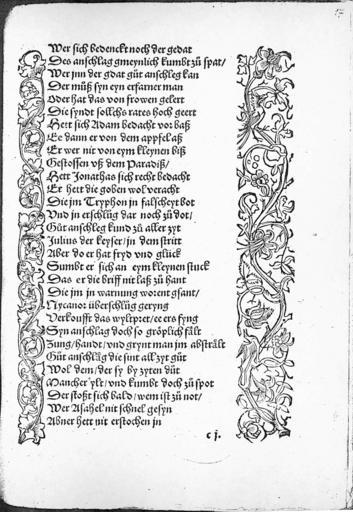 Wer sich bedenckt noch der gedat
Des anschlag gmeynlich kumbt zů spat/
Wer jnn der gdat gůt anschleg kan
Der můß syn eyn erfarner man
Oder hat das von frowen gelert
Die syndt sollichs rates hoch geert
Hett sich Adam bedacht vor baß
Ee dann er von dem appfel aß
Er wer nit von eym kleynen biß
Gestossen vß dem Paradiß/
Hett Jonathas sich recht bedacht
Er hett die goben wol veracht
Die jm Tryphon in falscheyt bot
Vnd in erschlůg dar noch zů dot/
Gůt anschleg kund zů aller zyt
Julius der keyser/in dem stritt
Aber do er hat fryd vnd glück
Sumbt er sich an eym kleynen stuck
Das er die briff nit laß zů hant
Die jm jn warnung worent gsant/
Nycanor überschlůg geryng
Verkoufft das wylpret/ee ers fyng
Syn anschlag doch so gröplich fält
Zung/handt/vnd grynt man jm abstrålt
Gůt anschläg die sint all zyt gůt
Wol dem/der sy by zyten důt
Mancher ylt/vnd kumbt doch zů spot
Der stoßt sich bald/wem ist zů not/
Wer Asahel nit schnel gesyn
Abner hett nit erstochen jn
c j.